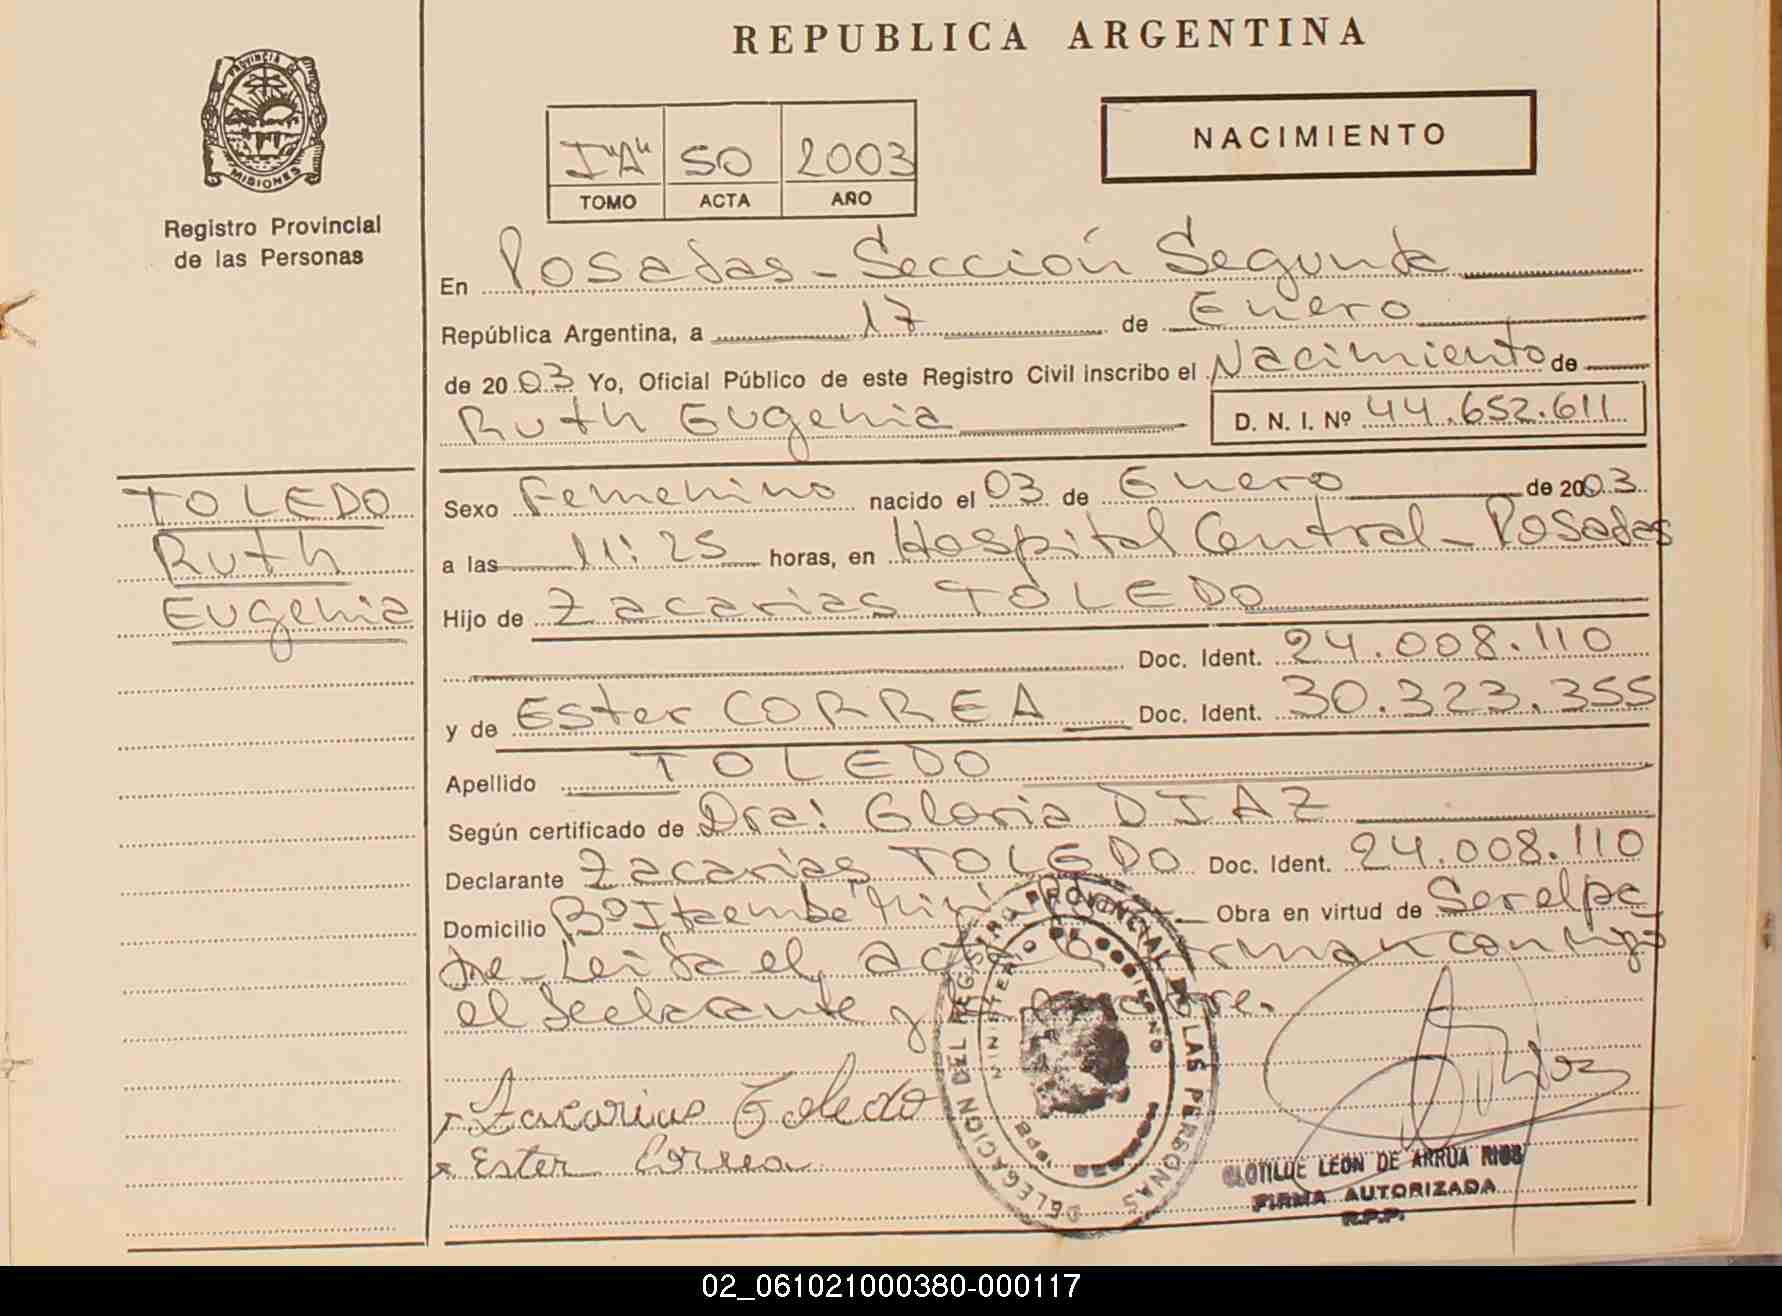 REPUBLICA ARGENTINA
PROVINCIA DE
MISIONES
Registro Provincial
de las Personas
I "A" 50 2003
TOMO ACTA AÑO
NACIMIENTO
En Posadas - Sección Segunda
República Argentina, a 17 de Enero
de 2003 Yo, Oficial Público de este Registro Civil inscribo el Nacimiento de
Ruth Eugenia D. N. I. Nº 44.652.611
TOLEDO
Ruth
Eugenia
Sexo Femenino nacido el 03 de Enero de 2003
a las 11:25 horas, en Hospital Central - Posadas
Hijo de Zacarias TOLEDO
Doc. Ident. 24.008.110
y de Ester CORREA Doc. Ident. 30.323.355
Apellido TOLEDO
Según certificado de Dra: Gloria DIAZ
Declarante Zacarias TOLEDO Doc. Ident. 24.008.110
Domicilio Bº Itaembe Miní Obra en virtud de Ser el pa
dre - Leida el acta firman conmigo
el declarante y la madre.
Zacarias Toledo
Ester Correa
DELEGACION DEL REGISTRO PROVINCIAL DE LAS PERSONAS
MINISTERIO DE GOBIERNO
CLOTILDE LEON DE ARRUA RIOS
FIRMA AUTORIZADA
R.P.P.
02_061021000380-000117